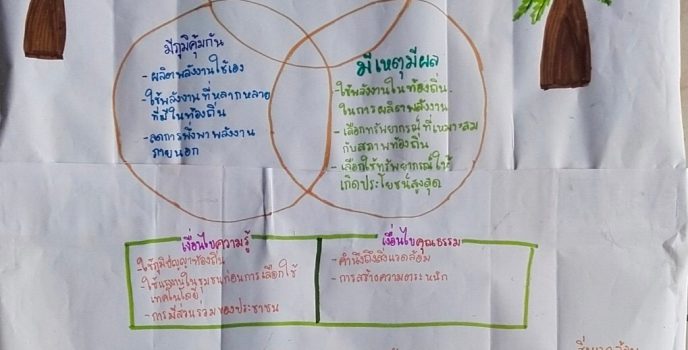 มีภูมิคุ้มกัน
- ผลิตพลังงานใช้เอง
- ใช้พลังงานที่หลากหลาย
ที่มีในท้องถิ่น
- ลดการพึ่งพาพลังงาน
ภายนอก
มีเหตุมีผล
- ใช้พลังงานในท้องถิ่น
ในการผลิตพลังงาน
- เลือกทรัพยากรที่เหมาะสม
กับสภาพท้องถิ่น
- เลือกใช้ทรัพยากรให้
เกิดประโยชน์สูงสุด
เงื่อนไขความรู้
- ใช้ภูมิปัญญาท้องถิ่น
- ใช้แรงงานในชุมชนก่อนการเลือกใช้
เทคโนโลยี
- การมีส่วนร่วมของประชาชน
เงื่อนไขคุณธรรม
- คำนึงถึงสิ่งแวดล้อม
- การสร้างความตระหนัก